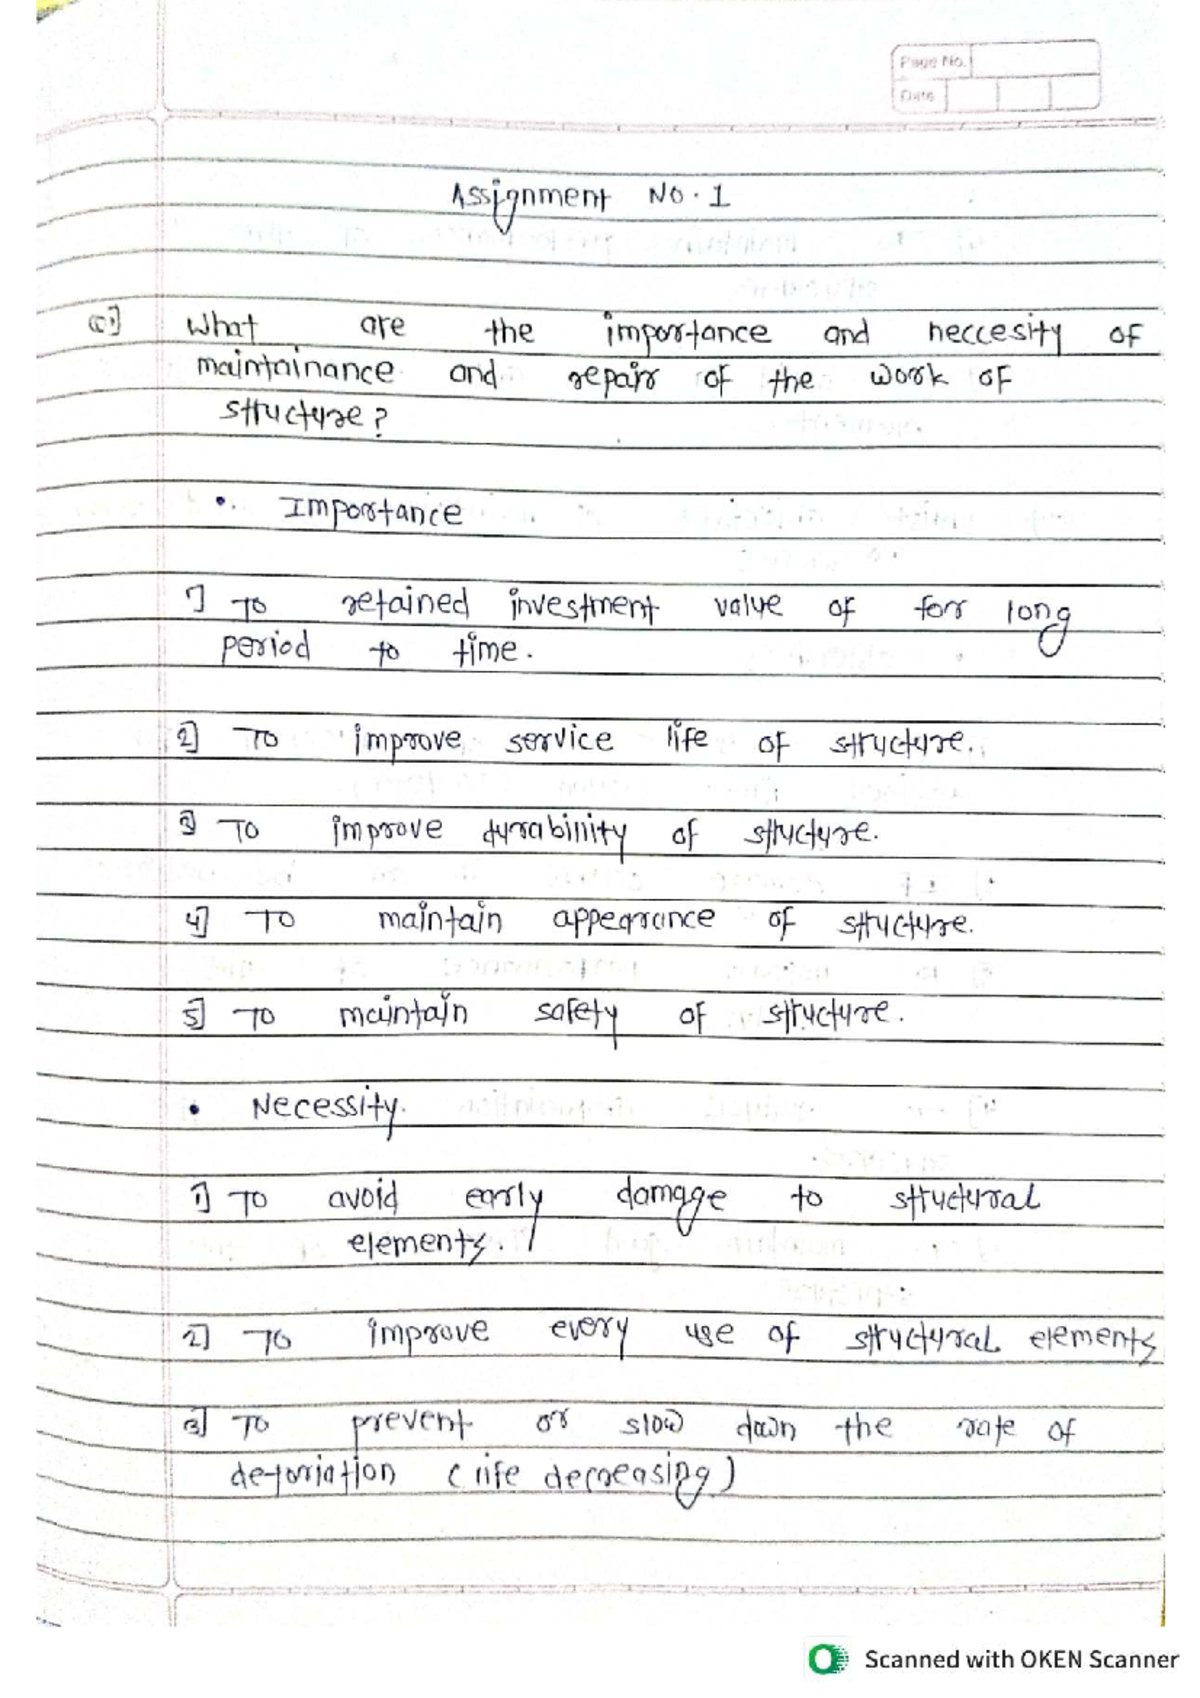 Page No.
Date
Assignment No. 1
What are the importance and neccesity of
maintainance and repair of the work of
structure?
• Importance
1] To retained investment value of for long
period to time.
2] To improve service life of structure.
3] To improve durability of structure.
4] To maintain appearance of structure.
5] To maintain safety of structure.
• Necessity
1] To avoid early damage to structural
elements.
2] To improve every use of structural elements
3] To prevent or slow down the rate of
detoriation (life decreasing)
Scanned with OKEN Scanner